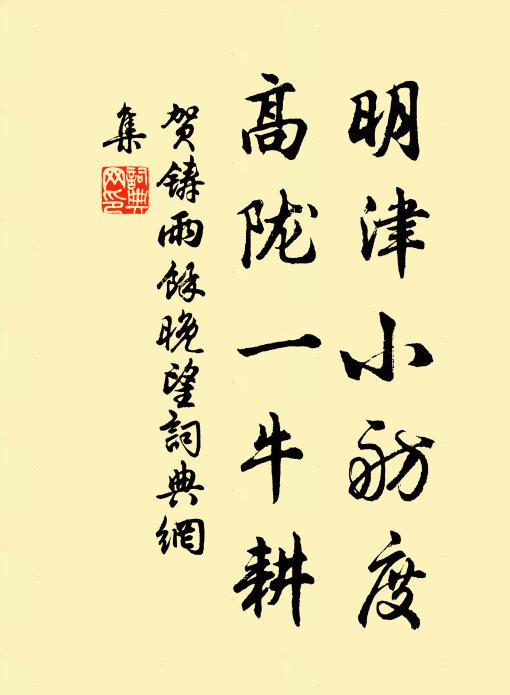 明津小舫度
高陇一牛耕
贺铸雨馀晚望詞典網
集
詞典網印